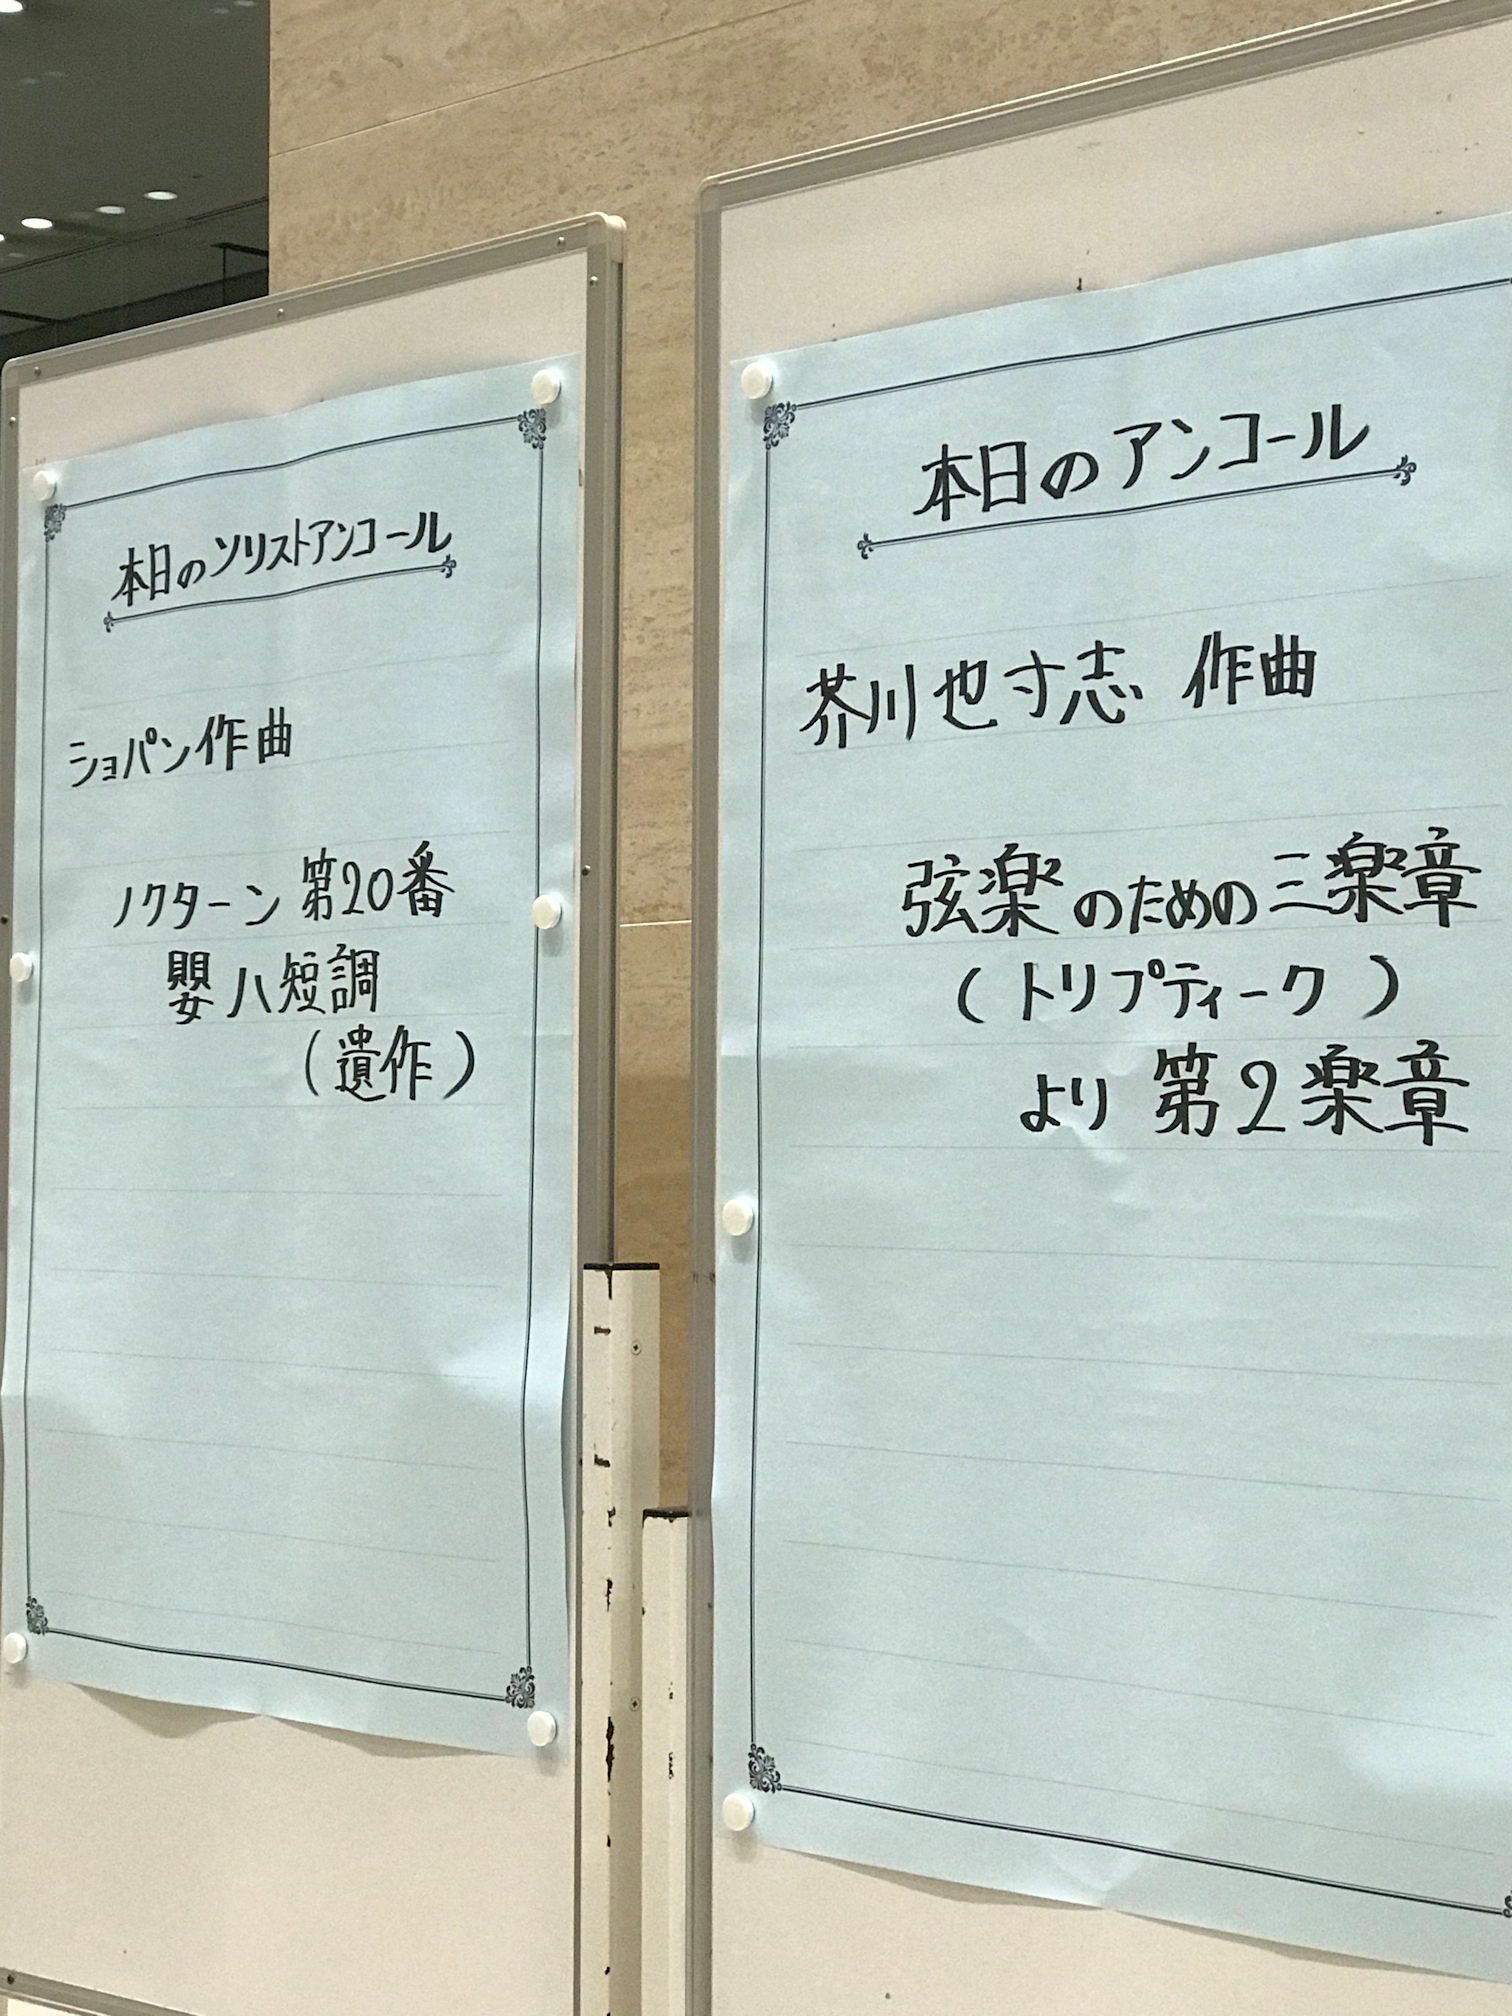 本日のソリストアンコール
ショパン作曲
ノクターン 第20番
嬰ハ短調
(遺作)
本日のアンコール
芥川也寸志 作曲
弦楽のための三楽章
(トリプティーク)
より 第2楽章